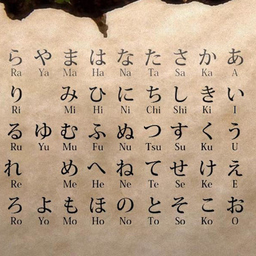 ら や ま は な た さ か あ
Ra Ya Ma Ha Na Ta Sa Ka A
り み ひ に ち し き い
Ri Mi Hi Ni Chi Shi Ki I
る ゆ む ふ ぬ つ す く う
Ru Yu Mu Fu Nu Tsu Su Ku U
れ め へ ね て せ け え
Re Me He Ne Te Se Ke E
ろ よ も ほ の と そ こ お
Ro Yo Mo Ho No To So Ko O